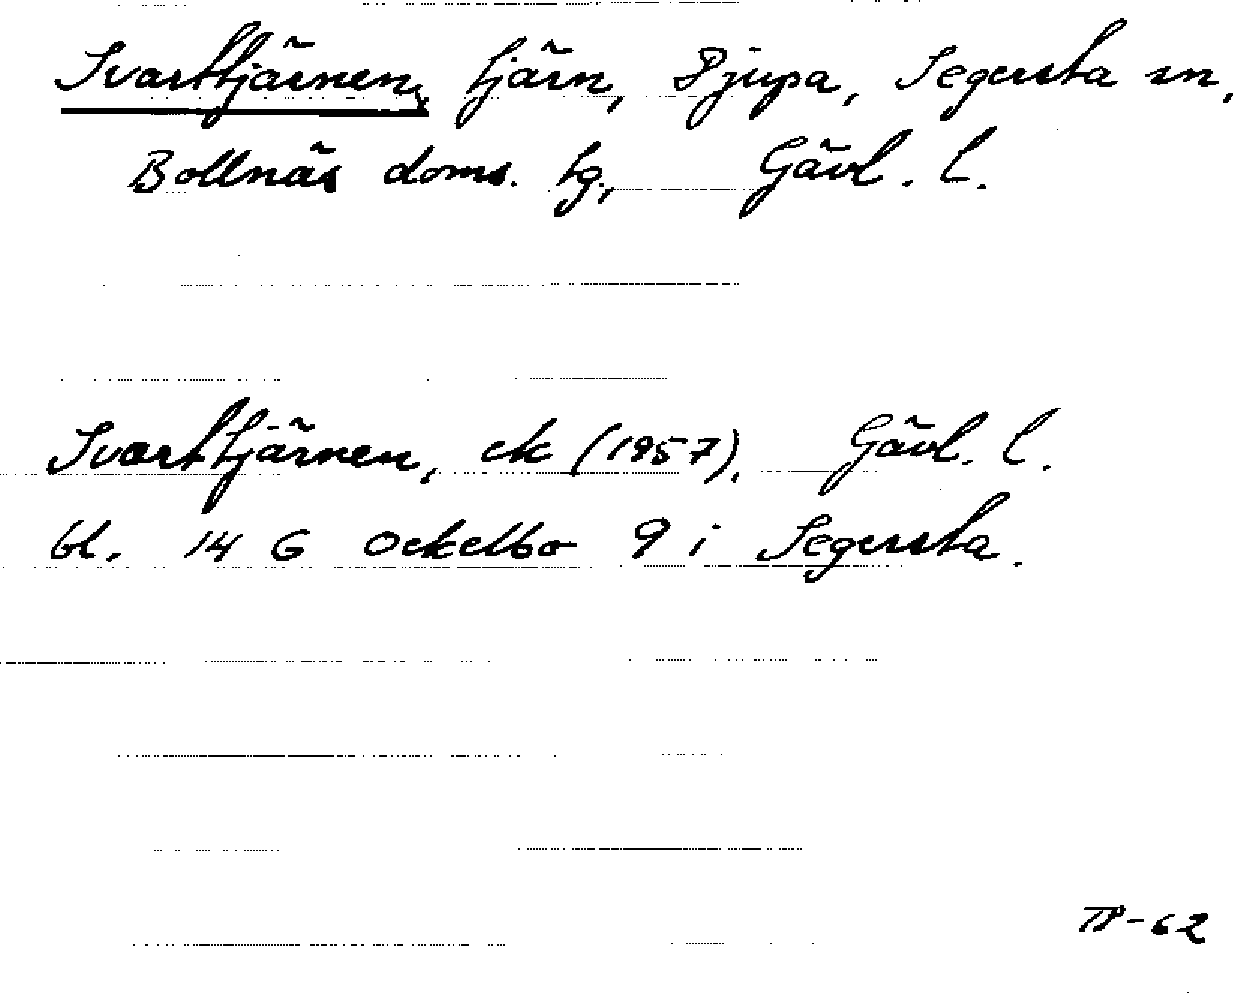 Svarttjärnen, tjärn, Djupa, Segersta sn,
Bollnäs doms. tg, Gävl. l.
Svarttjärnen, ek (1957), Gävl. l.
bl. 14 G Ockelbo 9 i Segersta.
TP-62